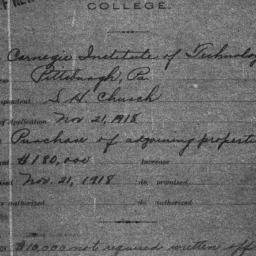 COLLEGE.
Carnegie Institute of Technolo
Pittsburgh, Pa
S H Church
of Application Nov 21, 1918
Purchase of adjoining propert
$180,000 Increase
Nov. 21, 1918 do promised
authorized do authorized
$10,000 not required written off